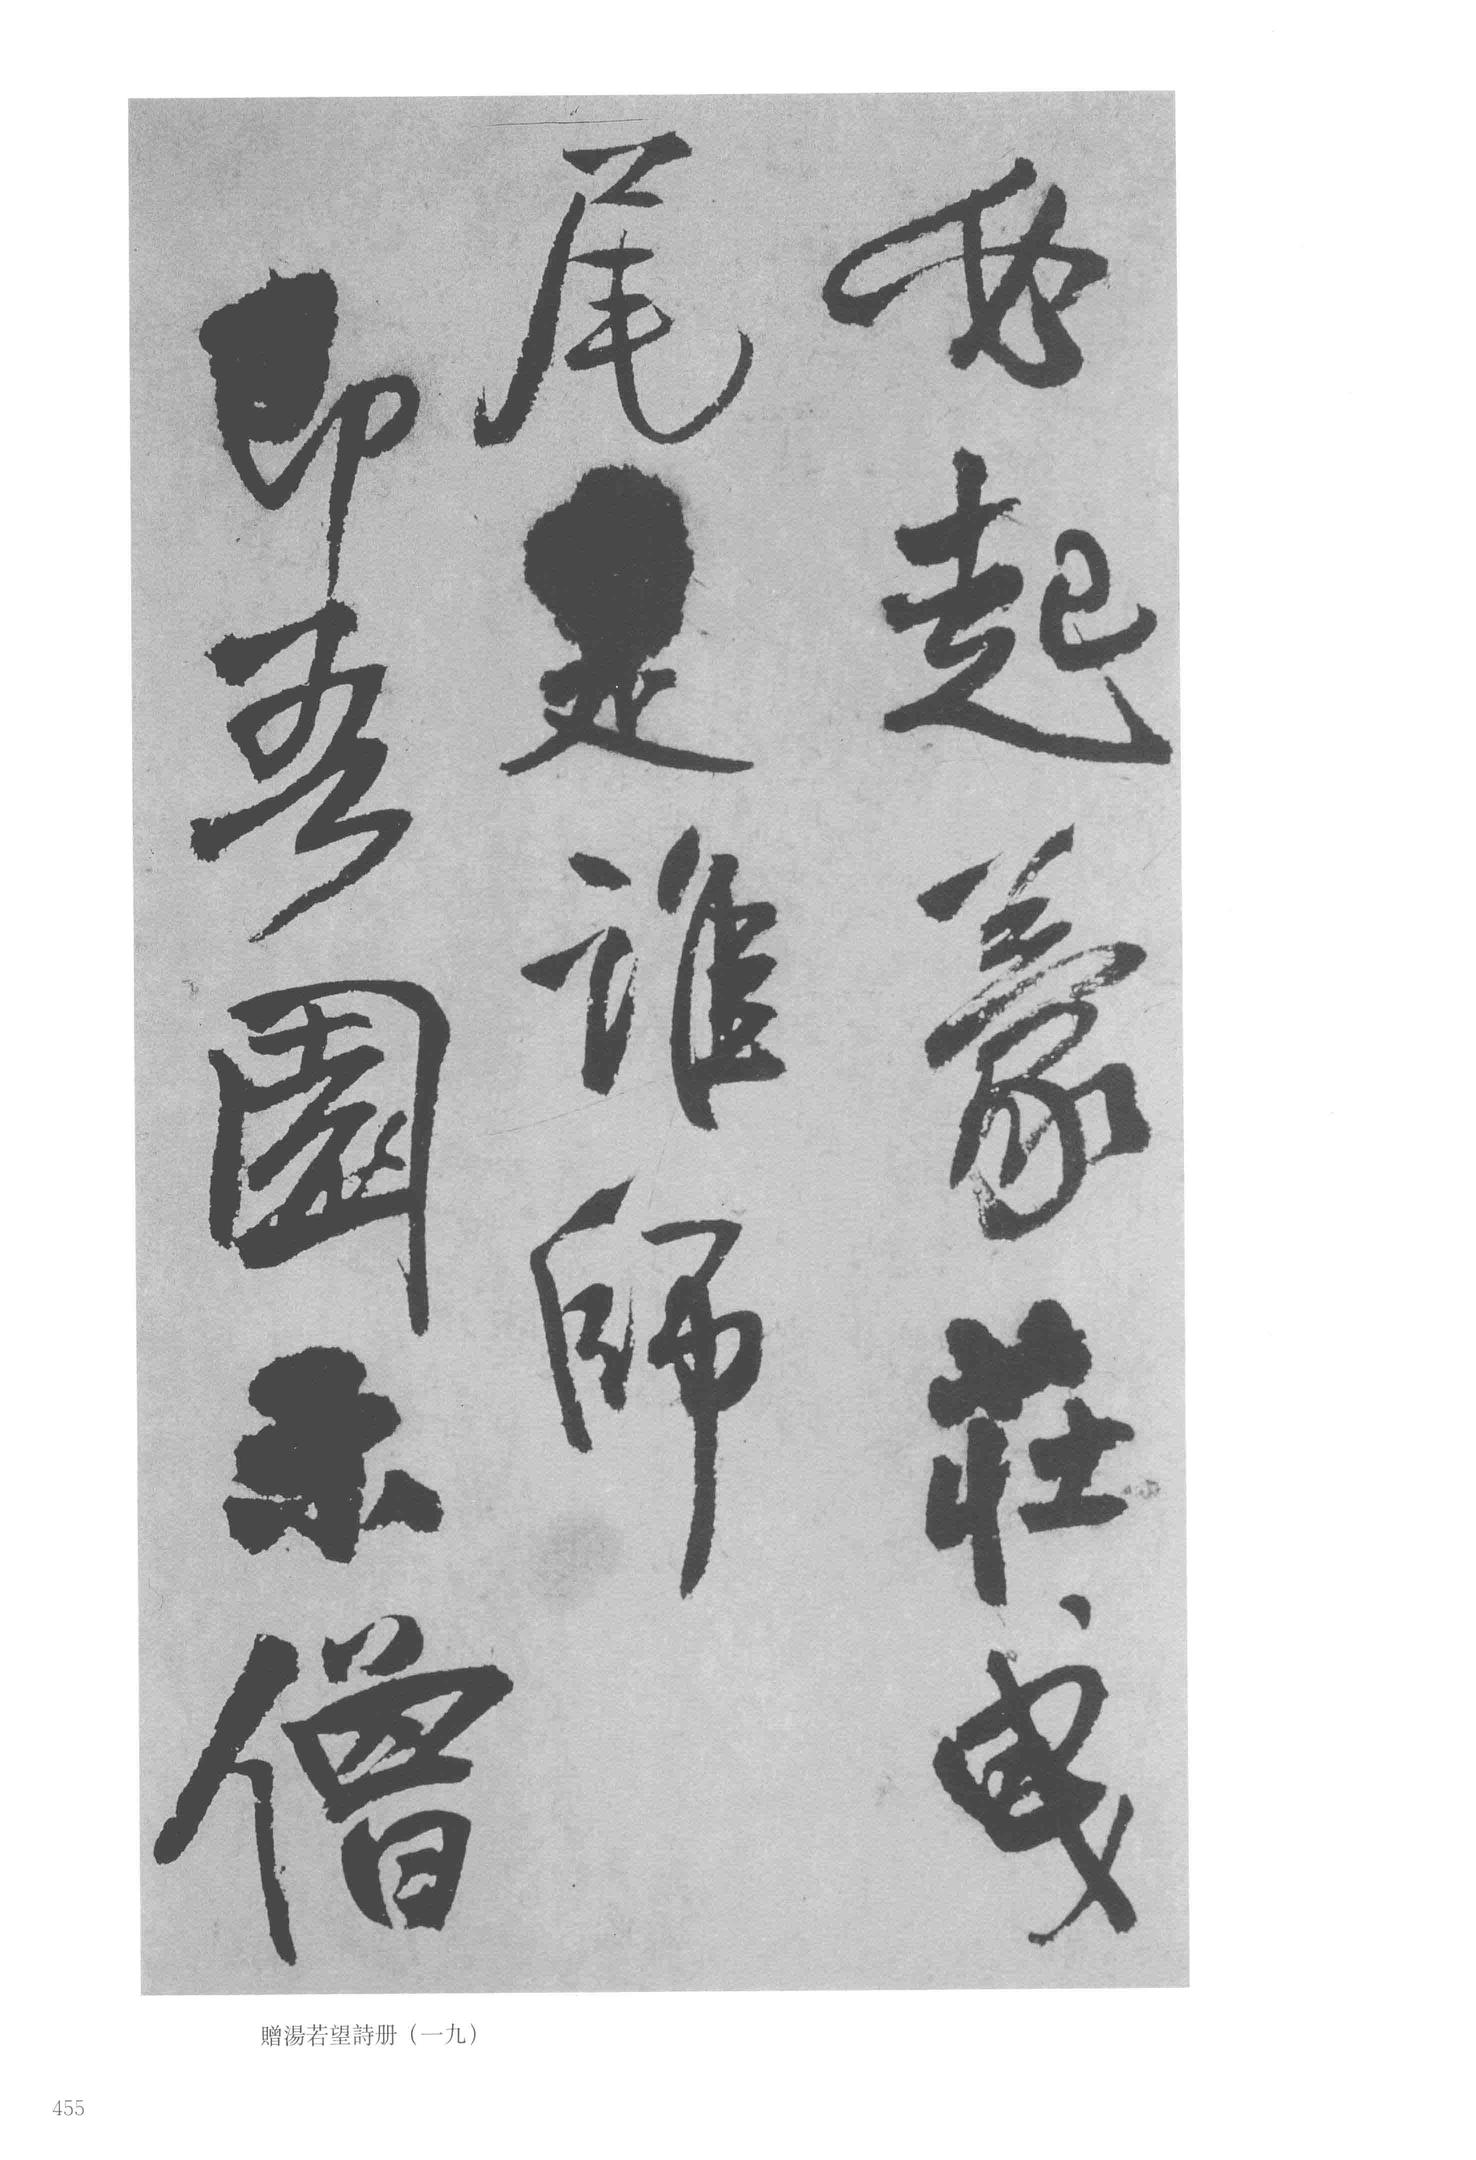 起蒙莊曳
尾是誰師
即吾園示僧
贈湯若望詩册（一九）
455